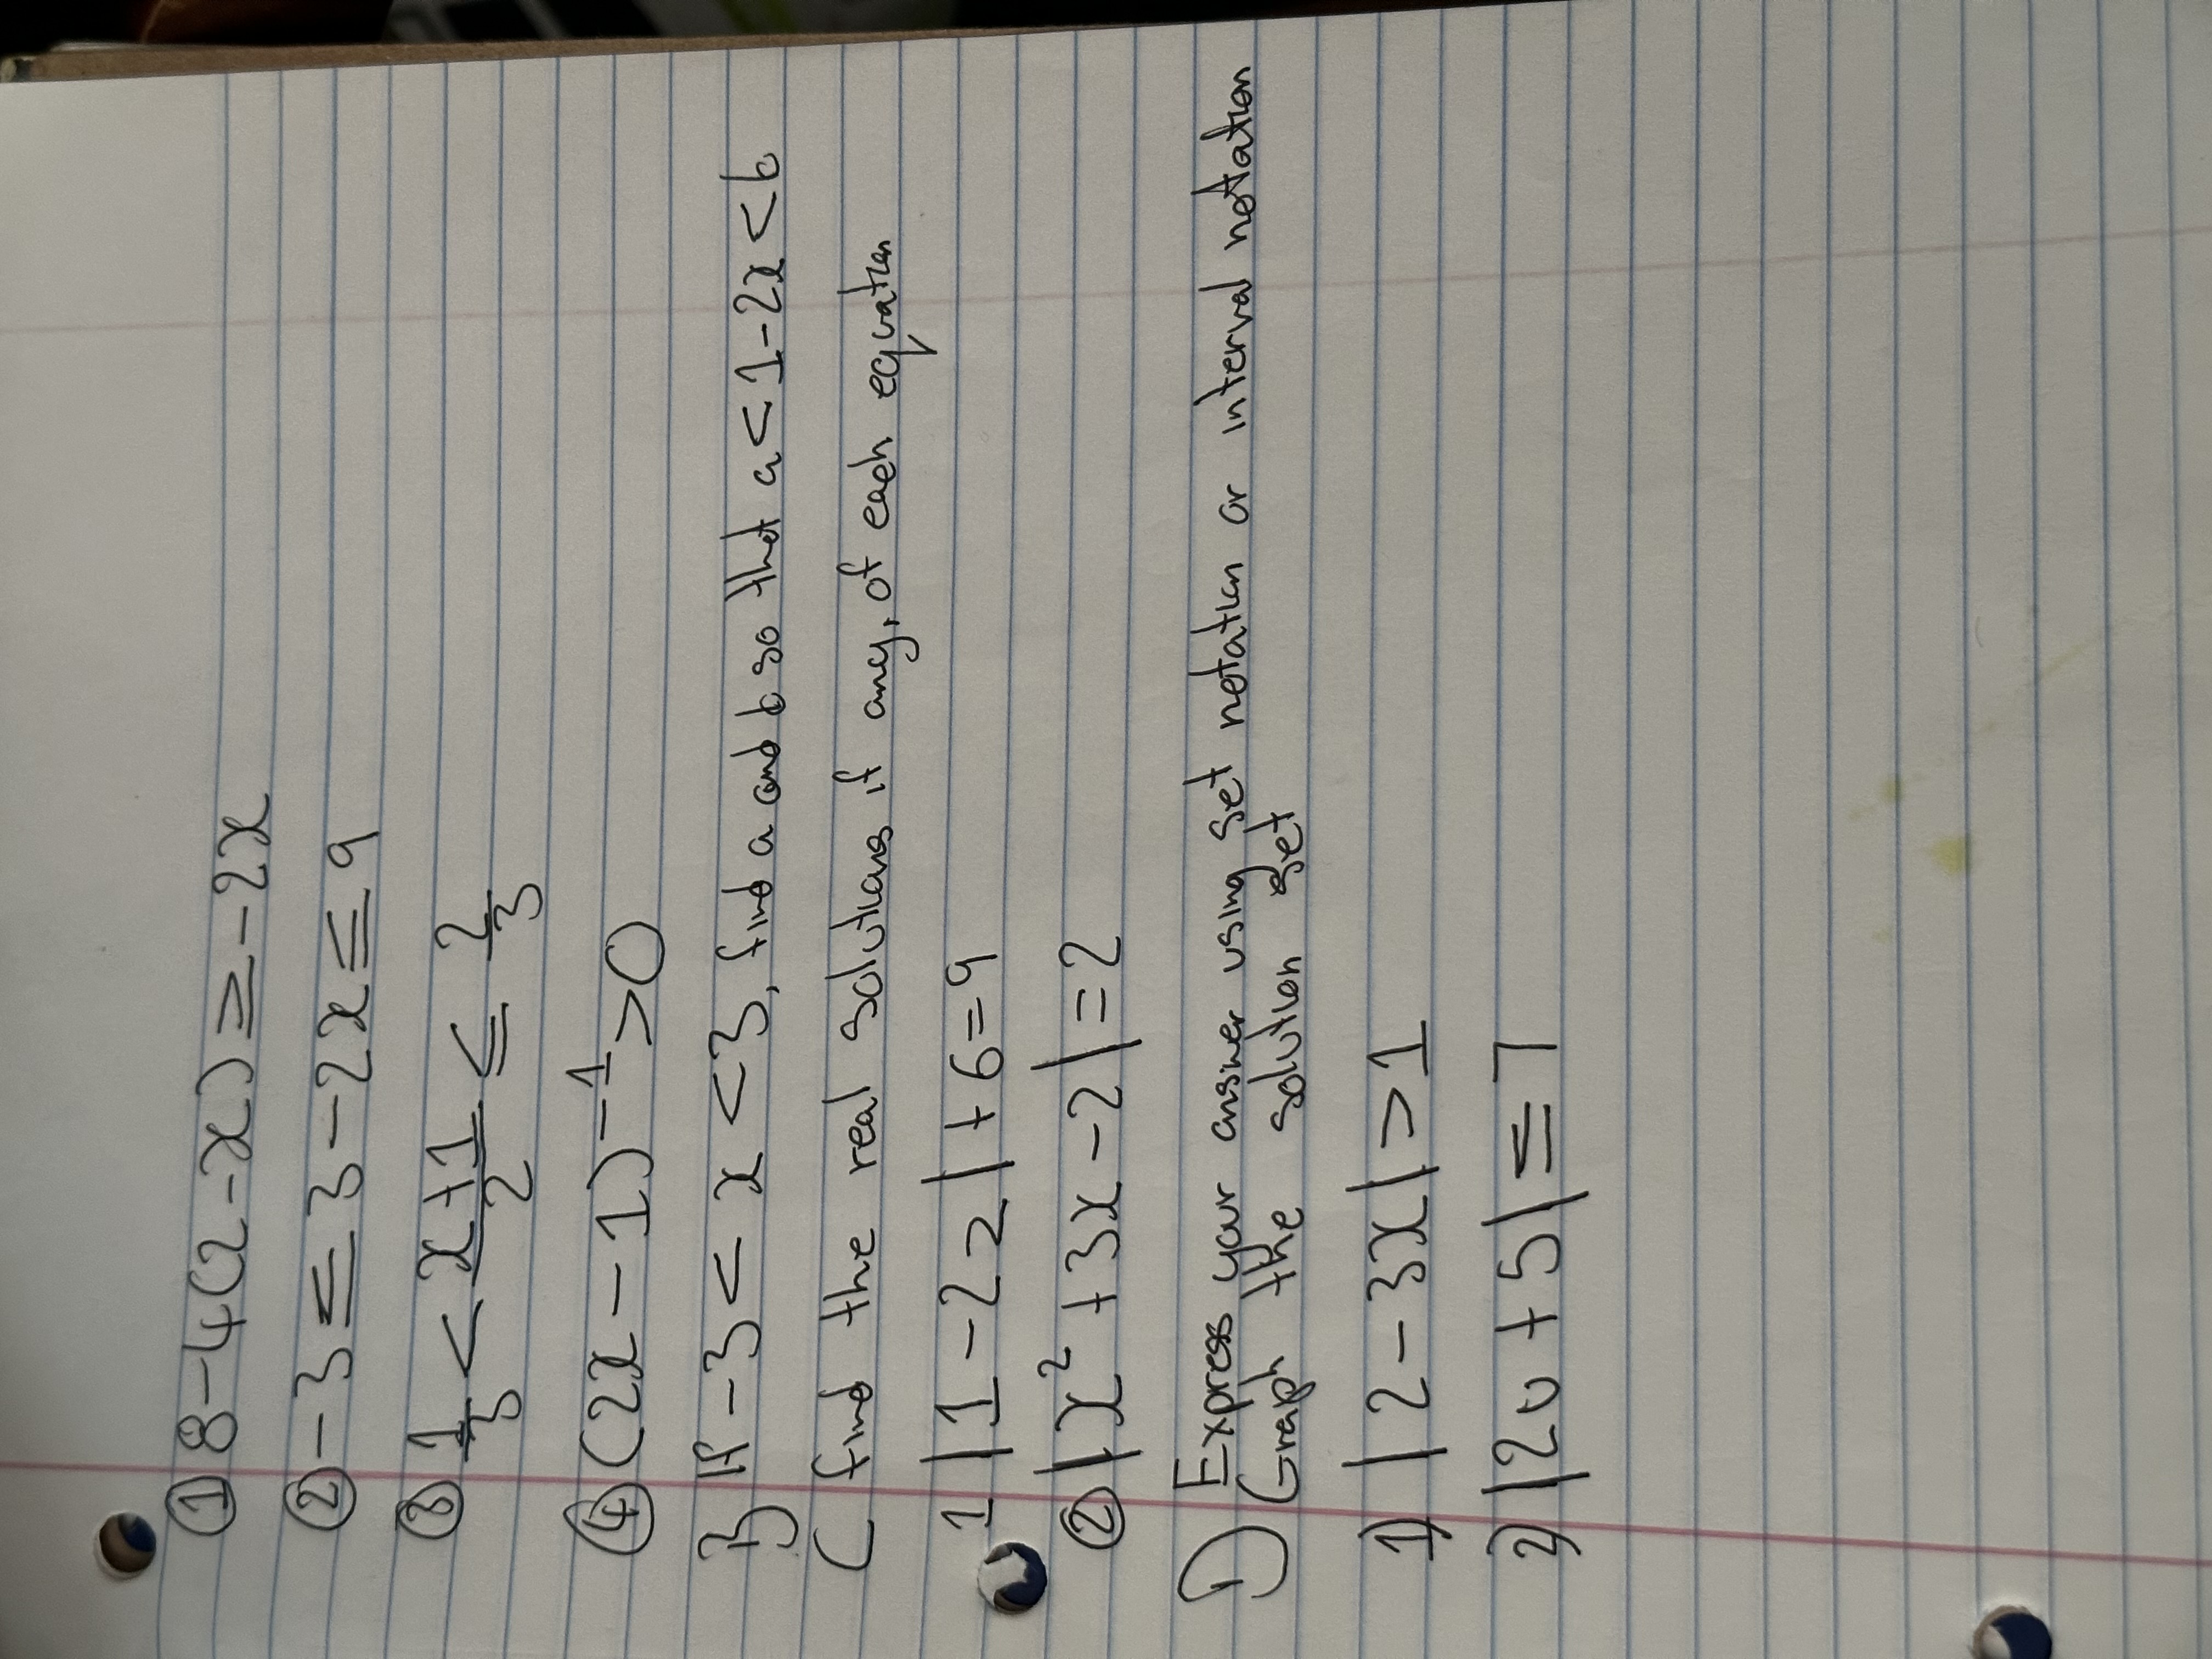 ① 8-4(2-x) ≥ -2x
② -3 ≤ 3-2x ≤ 9
③ 1/3 < (x+1)/2 ≤ 2/3
④ (2x-1)^-1 > 0
B If -3 < x < 3, find a and b so that a < 1-2x < b
C find the real solutions if any, of each equation
1 |1-2z| + 6 = 9
② |x² + 3x - 2| = 2
D Express your answer using set notation or interval notation
Graph the solution set
1) |2-3x| > 1
2) |2u + 5| ≤ 7